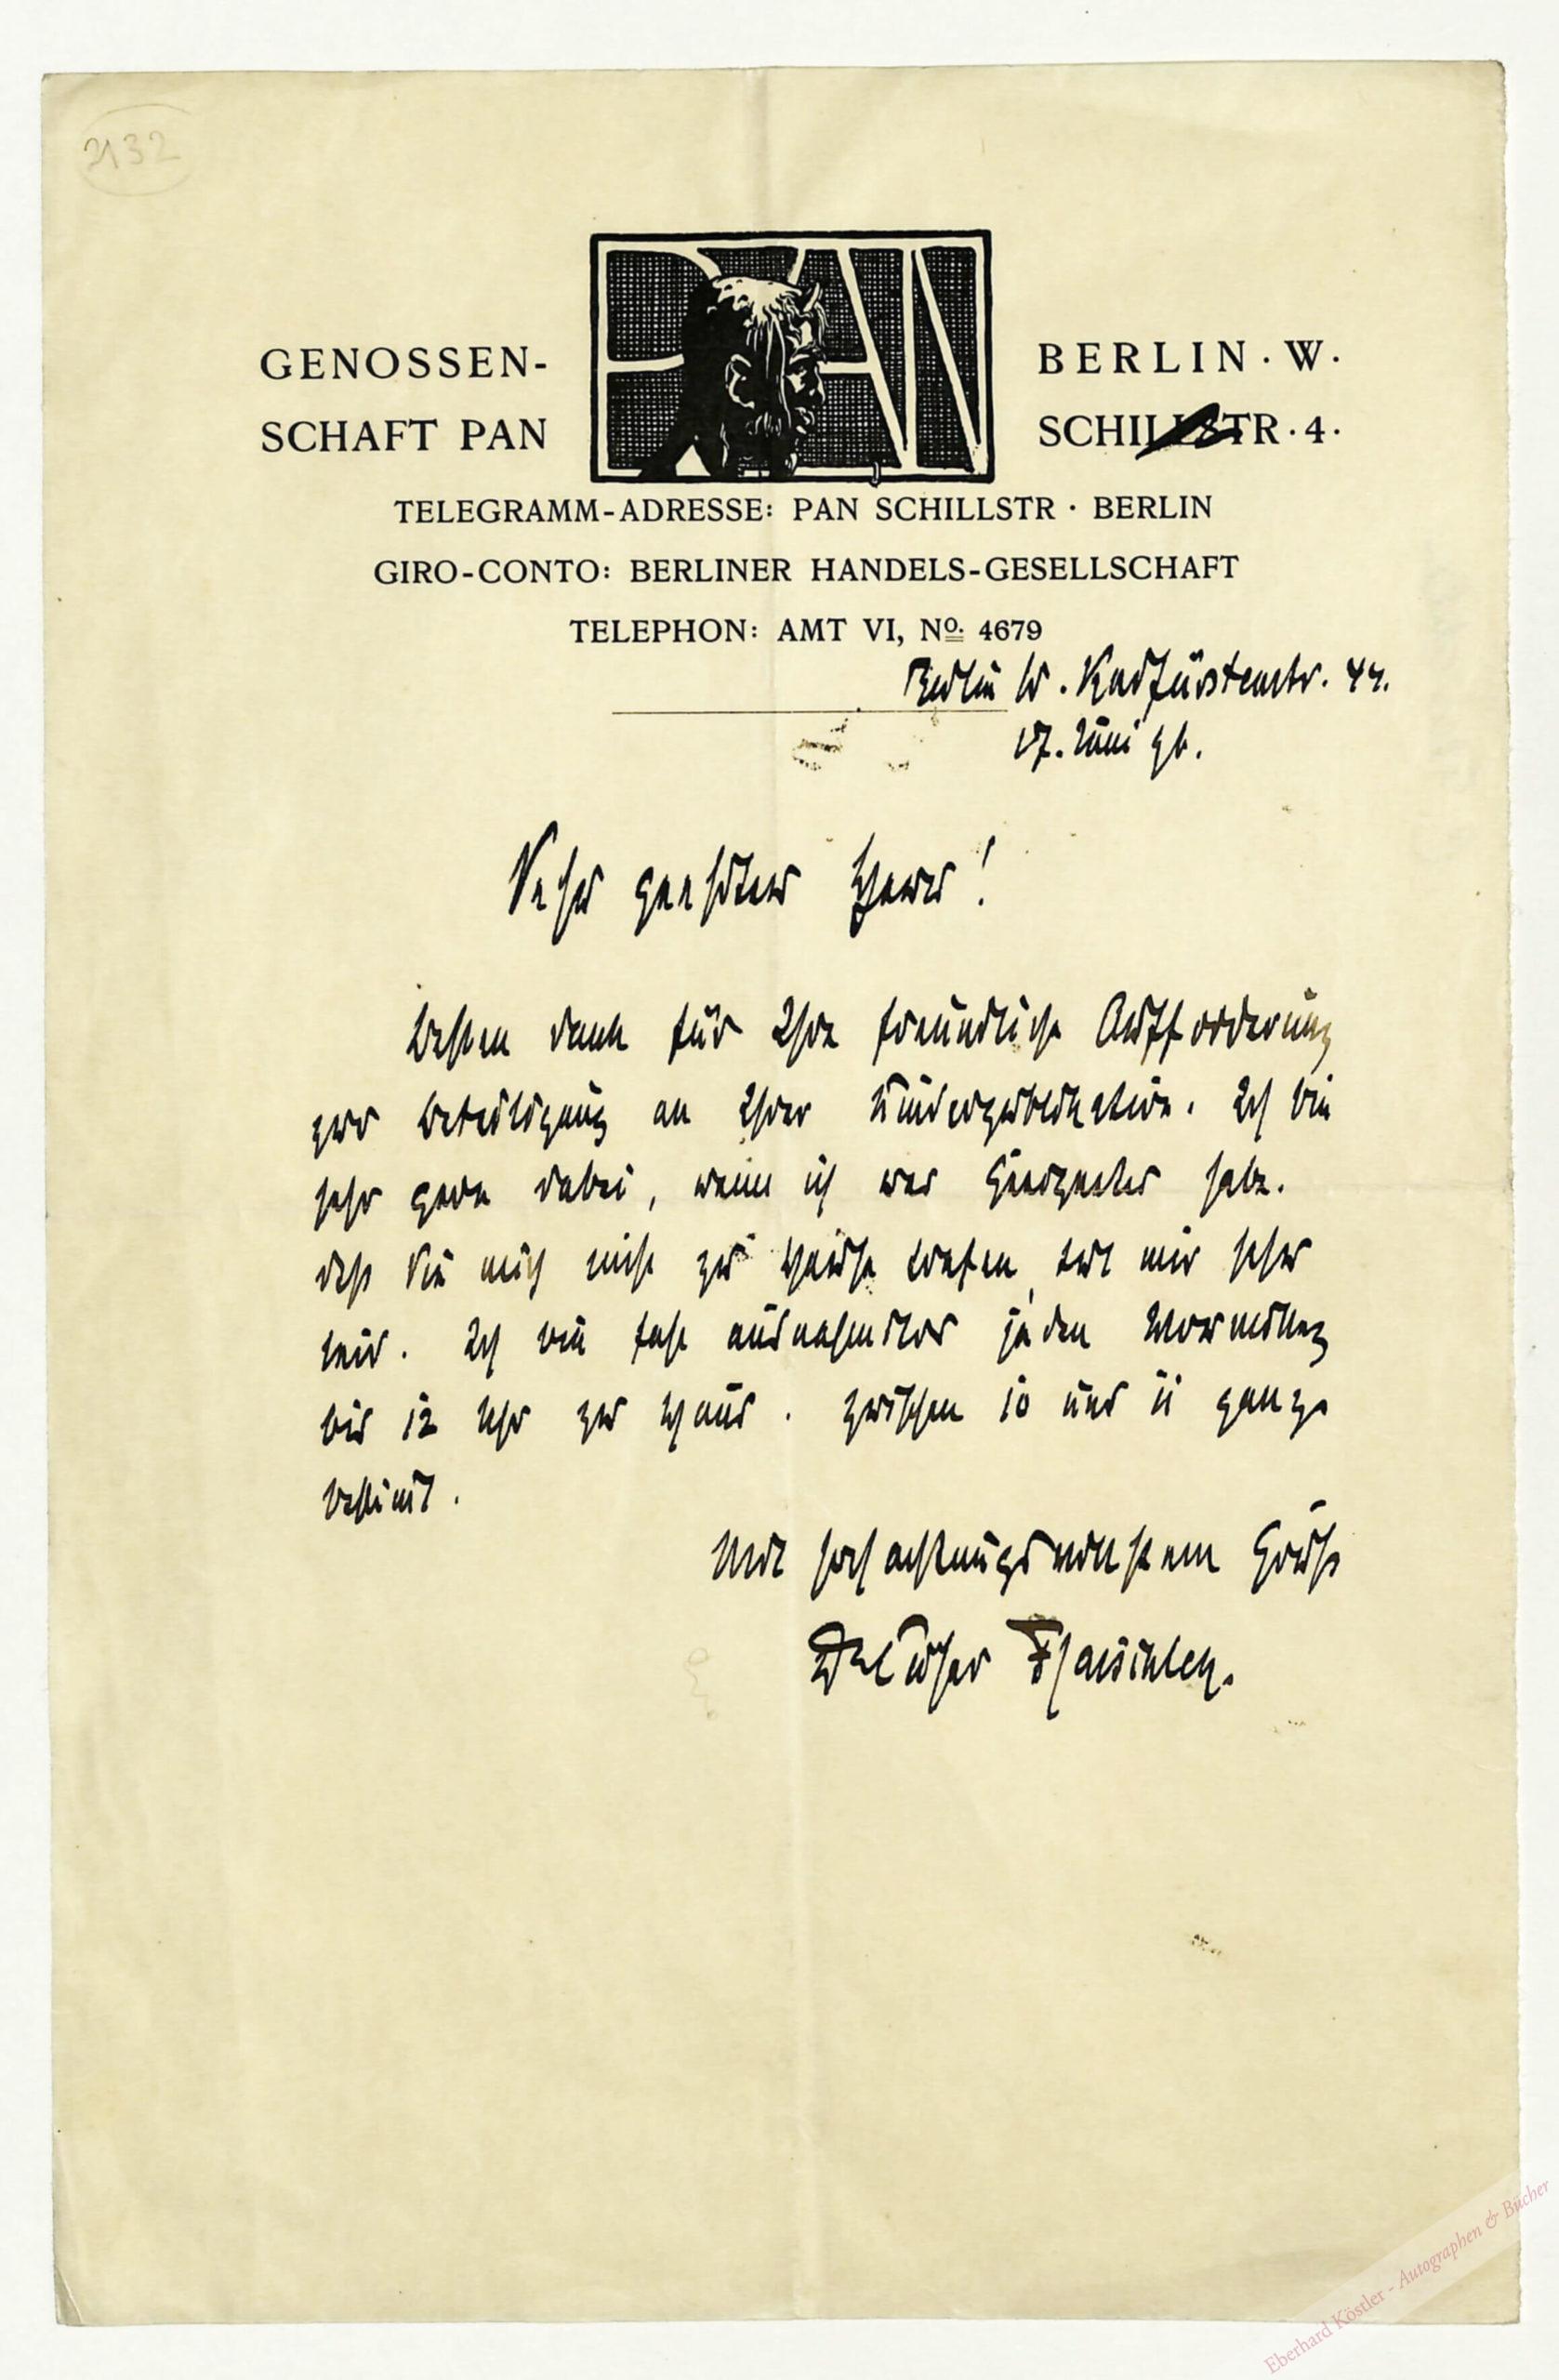 2132
GENOSSEN-
SCHAFT PAN
PAN
BERLIN · W.
SCHILLSTR · 4 ·
TELEGRAMM-ADRESSE: PAN SCHILLSTR · BERLIN
GIRO-CONTO: BERLINER HANDELS-GESELLSCHAFT
TELEPHON: AMT VI, No. 4679
Berlin W. Kurfürstenstr. 44.
17. Juni 96.
Sehr geehrter Herr!
besten dank für Ihre freundliche Aufforderung
zur beteiligung an Ihrer. Ich bin
sehr gern dabei, wenn ich was habe.
dass Sie mich nicht zu Hause trafen, tut mir sehr
leid. Ich bin fast ausnahmslos jeden Vormittag
bis 12 Uhr zu Haus. zwischen 10 und 11 ganz
bestimt.
Mit hochachtungsvollstem Gruss
Cäsar Flaischlen.
Eberhard Köstler - Autographen & Bücher